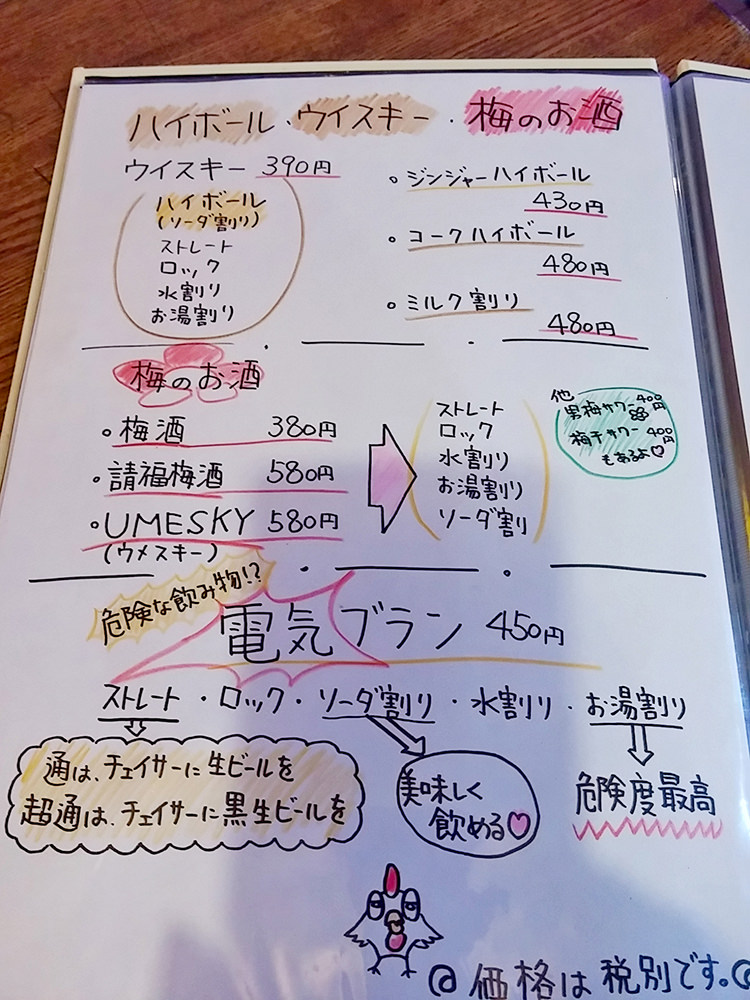 ハイボール・ウイスキー・梅のお酒
ウイスキー 390円
ハイボール
(ソーダ割り)
ストレート
ロック
水割り
お湯割り
。ジンジャーハイボール
430円
。コークハイボール
480円
。ミルク割り
480円
梅のお酒
。梅酒 380円
。請福梅酒 580円
。UMESKY 580円
(ウメスキー)
ストレート
ロック
水割り
お湯割り
ソーダ割
他
男梅サワー 400円
梅干サワー 400円
もあるよ♡
危険な飲み物!?
電気ブラン 450円
ストレート・ロック・ソーダ割り・水割り・お湯割り
通は、チェイサーに生ビールを
超通は、チェイサーに黒生ビールを
美味しく
飲める♡
危険度最高
@価格は税別です。@